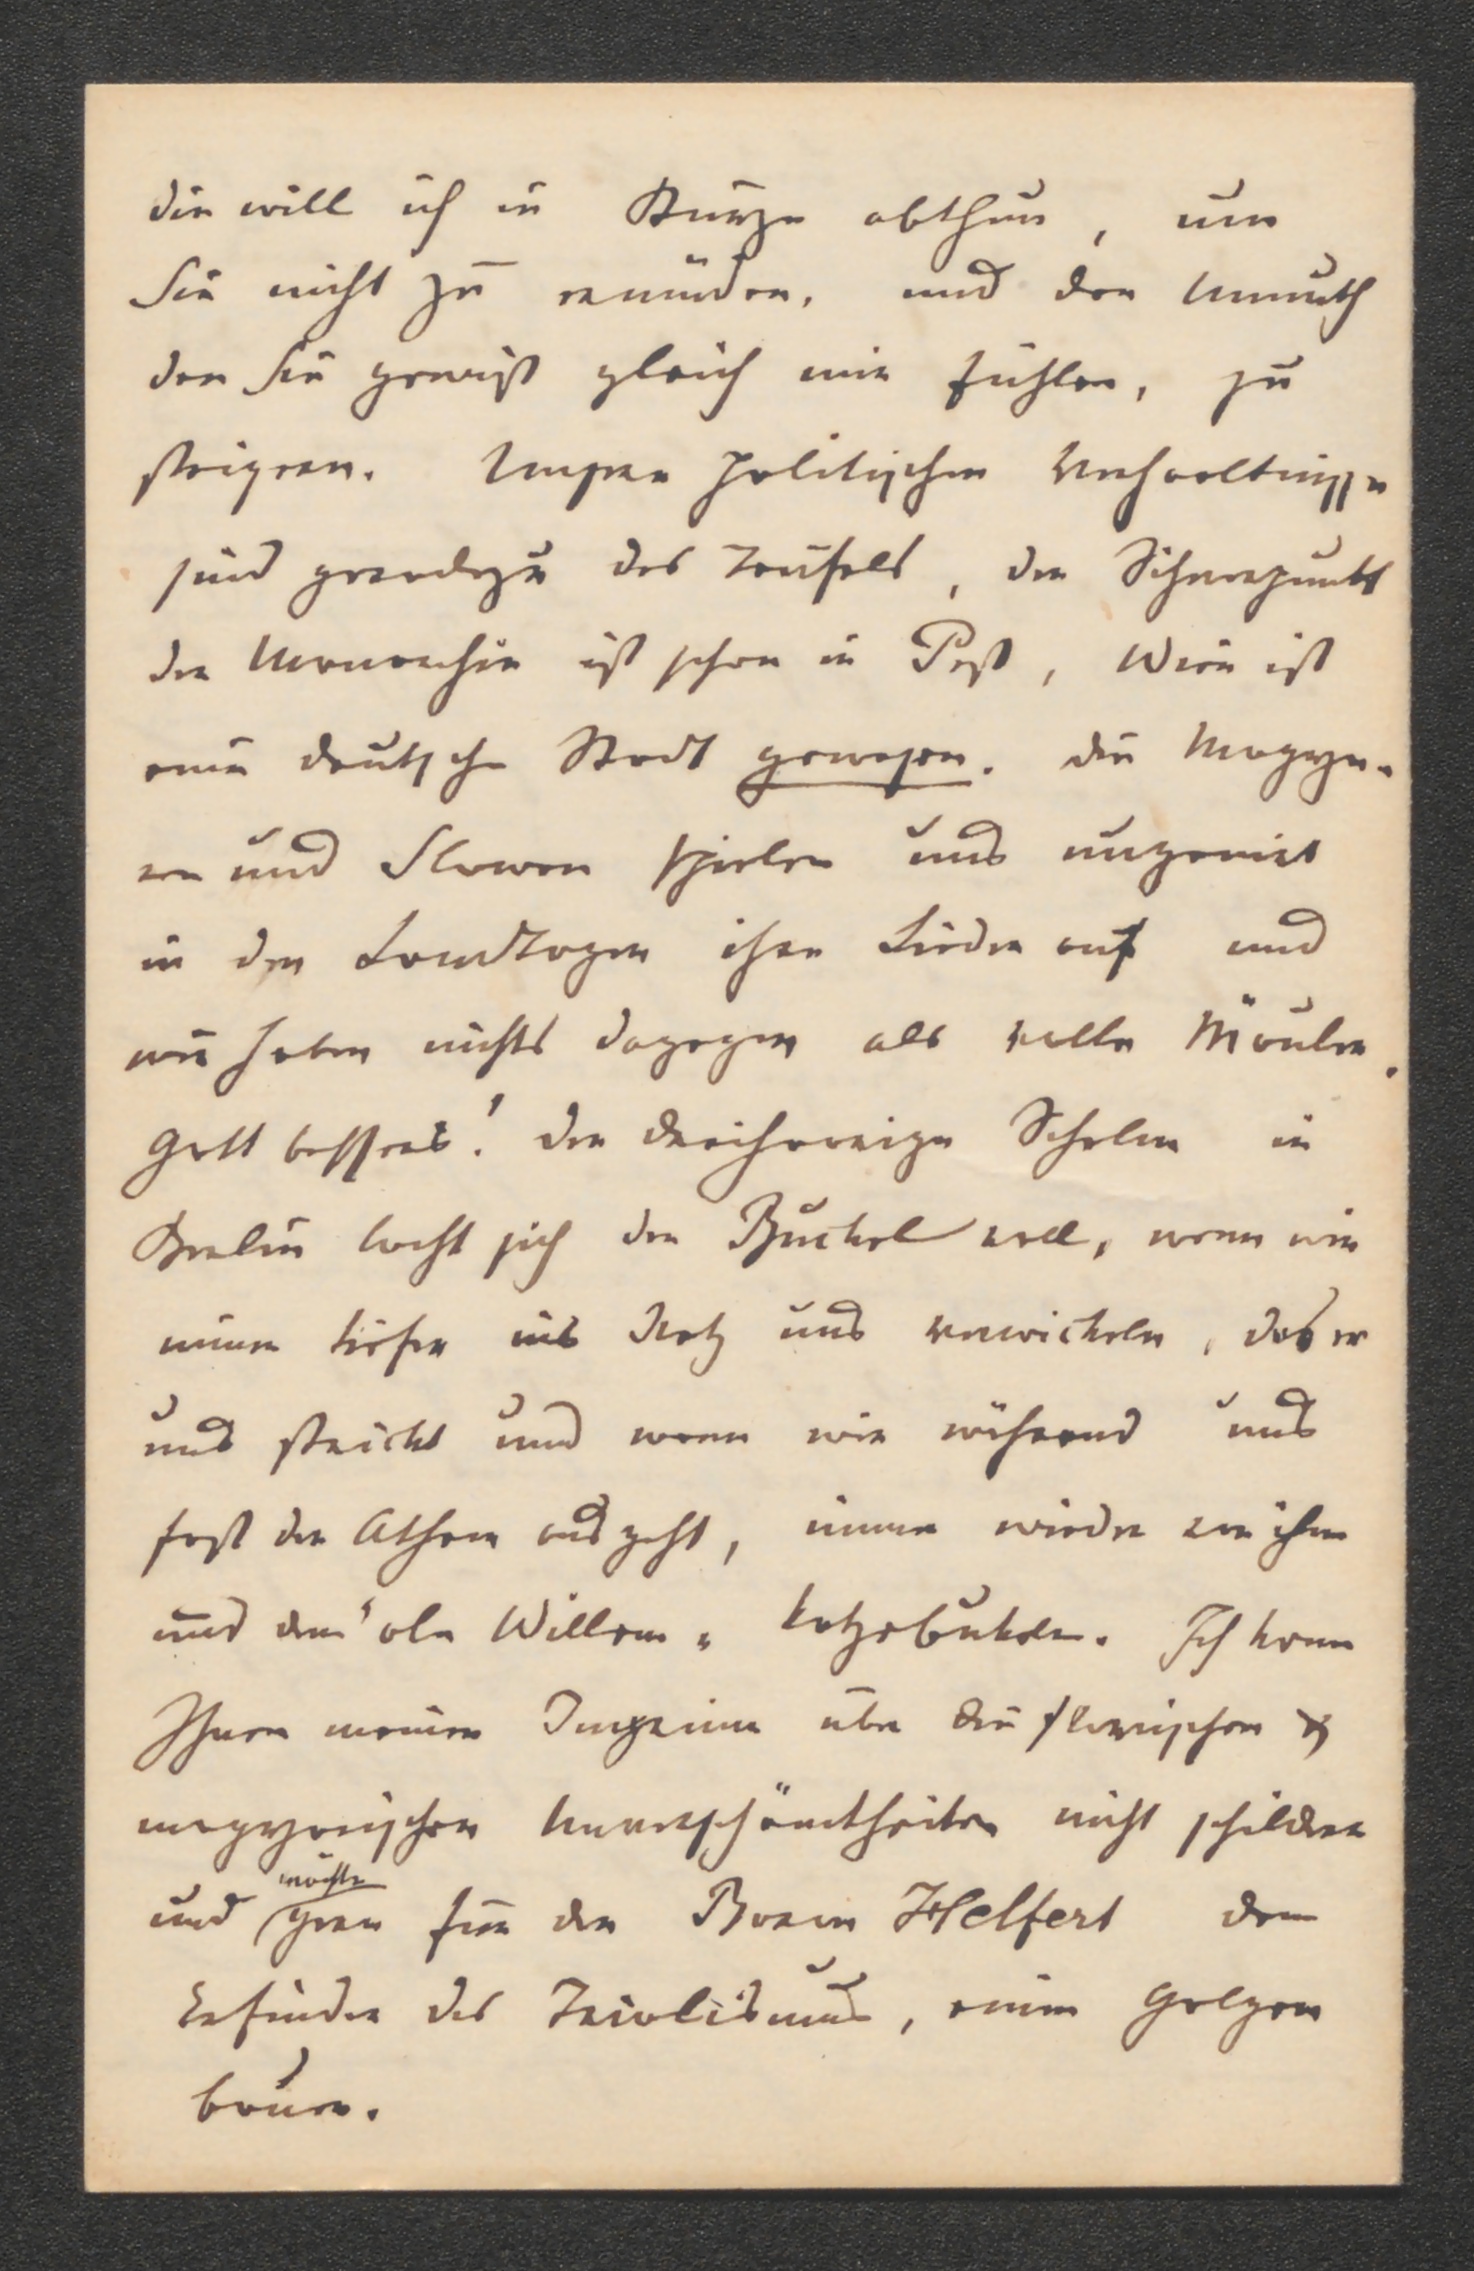 die will ich in Kürze abthun, um
Sie nicht zu ermüden, und den Unmuth
den Sie gewiß gleich mir fühlen, zu
steigern. Unsere politischen Verhaltnisse
sind geradezu des Teufels, der Schwerpunkt
der Monarchie ist schon in Pest, Wien ist
eine deutsche Stadt gewesen. Die Magya-
ren und Slawen spielen uns ungenirt
in den Landtagen ihre Lieder auf und
wir haben nichts dagegen als volle Mäuler.
Gott besser's! Der dreihaarige Schelm in
Berlin lacht sich den Buckel voll, wenn wir
immer tiefer ins Netz uns verwickeln, das er
uns strickt und wenn wir während uns
fast der Athem ausgeht, immer wieder vor ihm
und dem "oln Willem" katzebukeln. Ich kann
Ihnen meinen Ingrimm über die slawischen &
magyarischen Unverschämtheiten nicht schildern
und möchte gern für den Baron Helfert dem
Erfinder des Trialismus, einen Galgen
bauen.